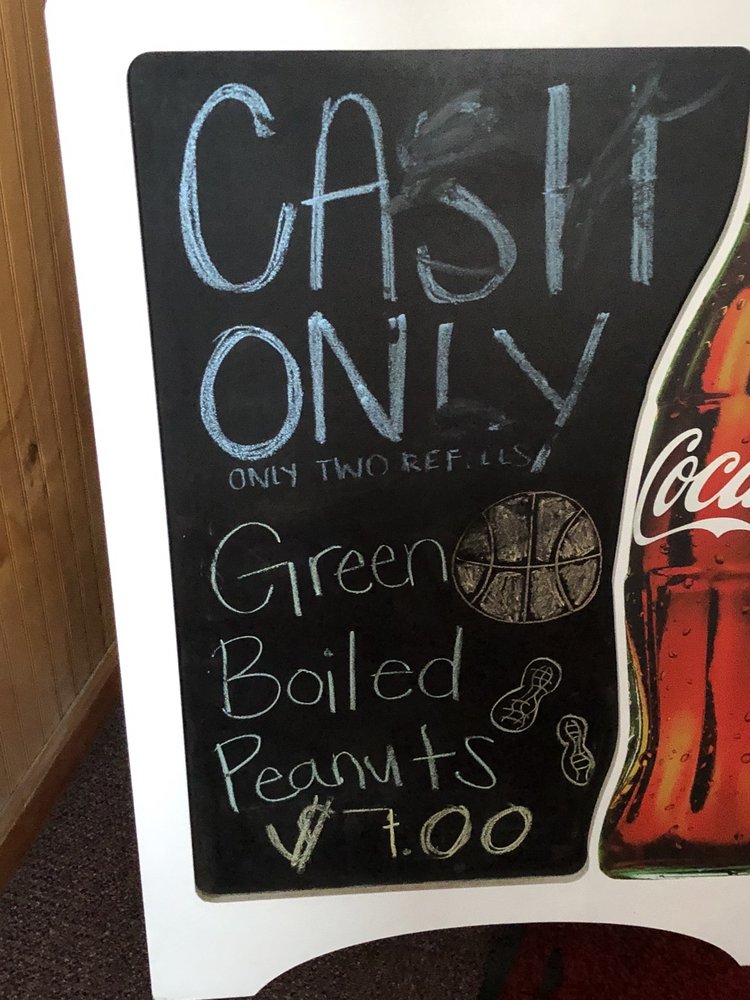 CASH
ONLY
ONLY TWO REFILLS
Green
Boiled
Peanuts
$7.00
Coca